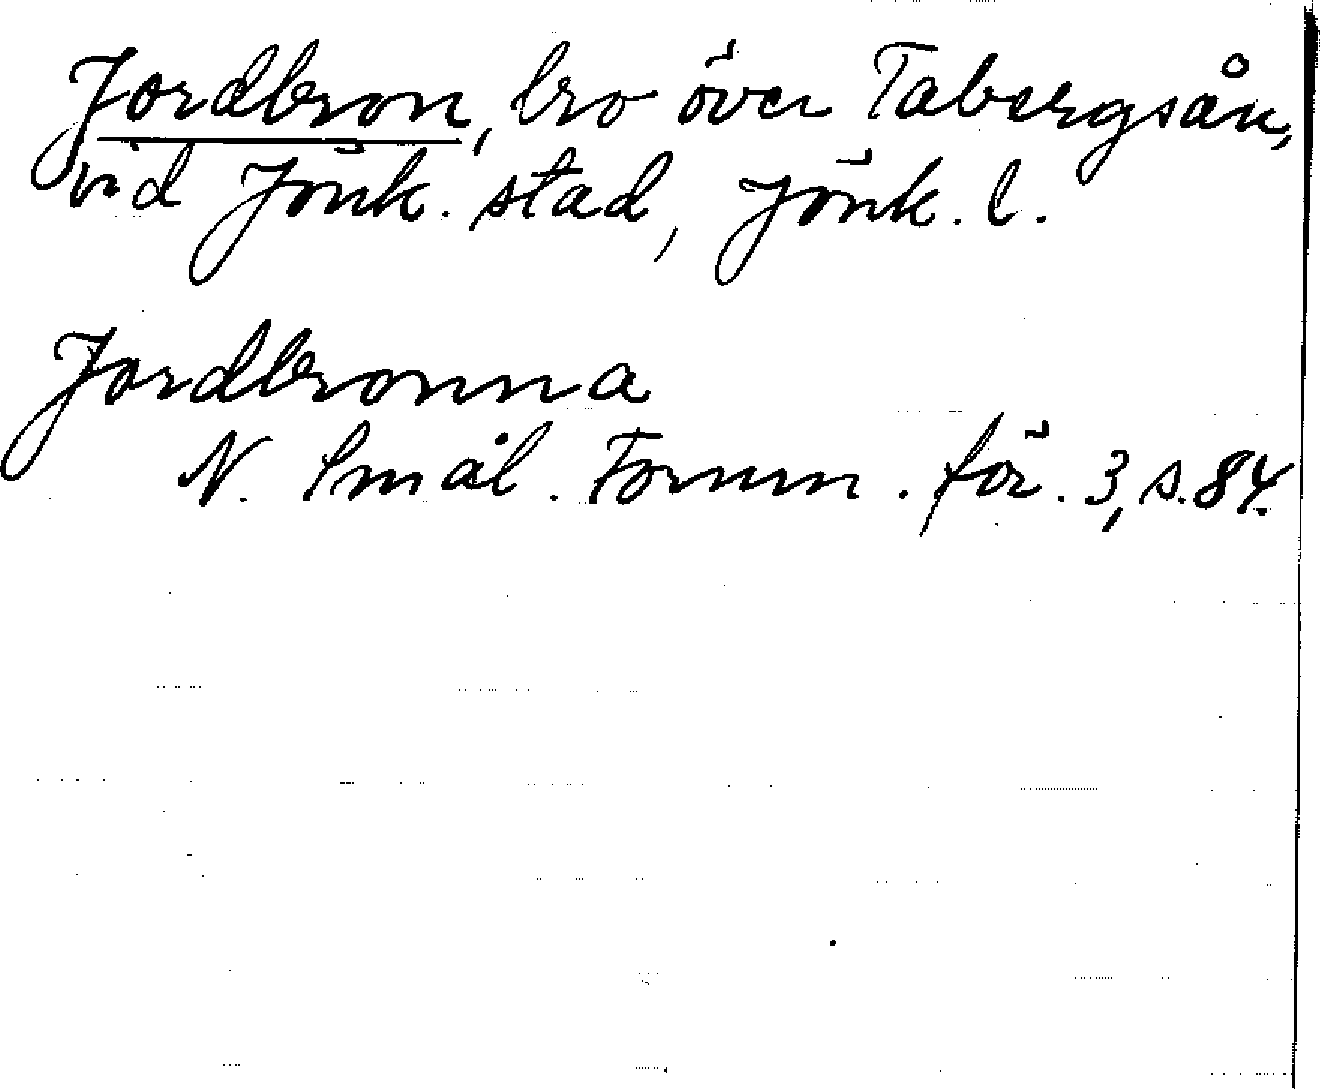 Jordbron, bro över Tabergsån,
vid Jönk. stad, Jönk. l.
Jordbronna
N. Smål. Fornm. för. 3, s. 84.